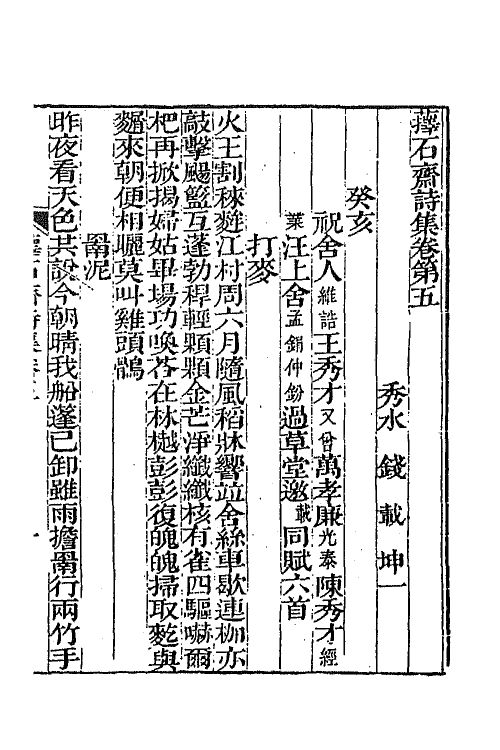 蘀石齋詩集卷第五
秀水 錢 載 坤一
癸亥
祝舍人維誥王秀才又曾萬孝廉光泰陳秀才經
業汪上舍孟鋗仲鈖過草堂邀載同賦六首
打麥
火王割秾䴰江村周六月隨風稻牀響並舍絲車歇連枷亦
敲擊颺籃互蓬勃稈輕顆顆金芒凈纖纖核有雀四驅嚇爾
杷再掀揚婦姑畢場功喚荅在林樾彭彭復魄魄掃取麧與
麵來朝便相曬莫叫雞頭鶻
罱泥
昨夜看天色共說今朝晴我船蓬已卸雖雨擔罱行兩竹手